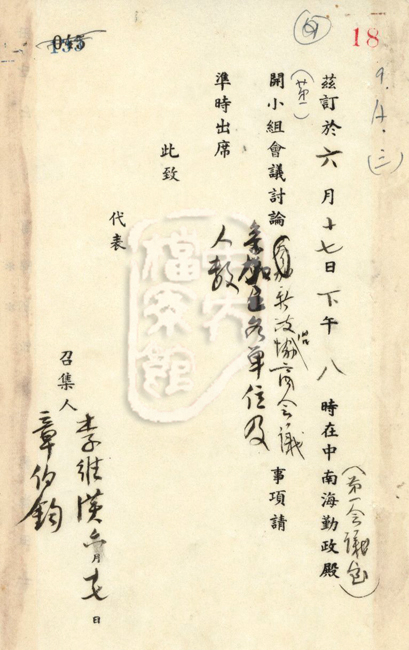 18
茲訂於六月十七日下午八時在中南海勤政殿
(第一會議室)
(第一)
開小組會議討論參加新政治協商會議之各單位及人數事項請
準時出席
此致
代表
召集人 李維漢
章伯鈞
六月十七日
中央檔案館